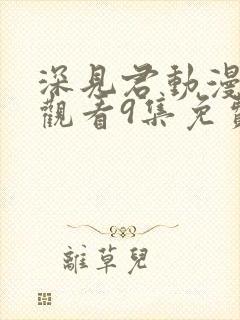 深見君動漫
觀看9集免費
離草兒